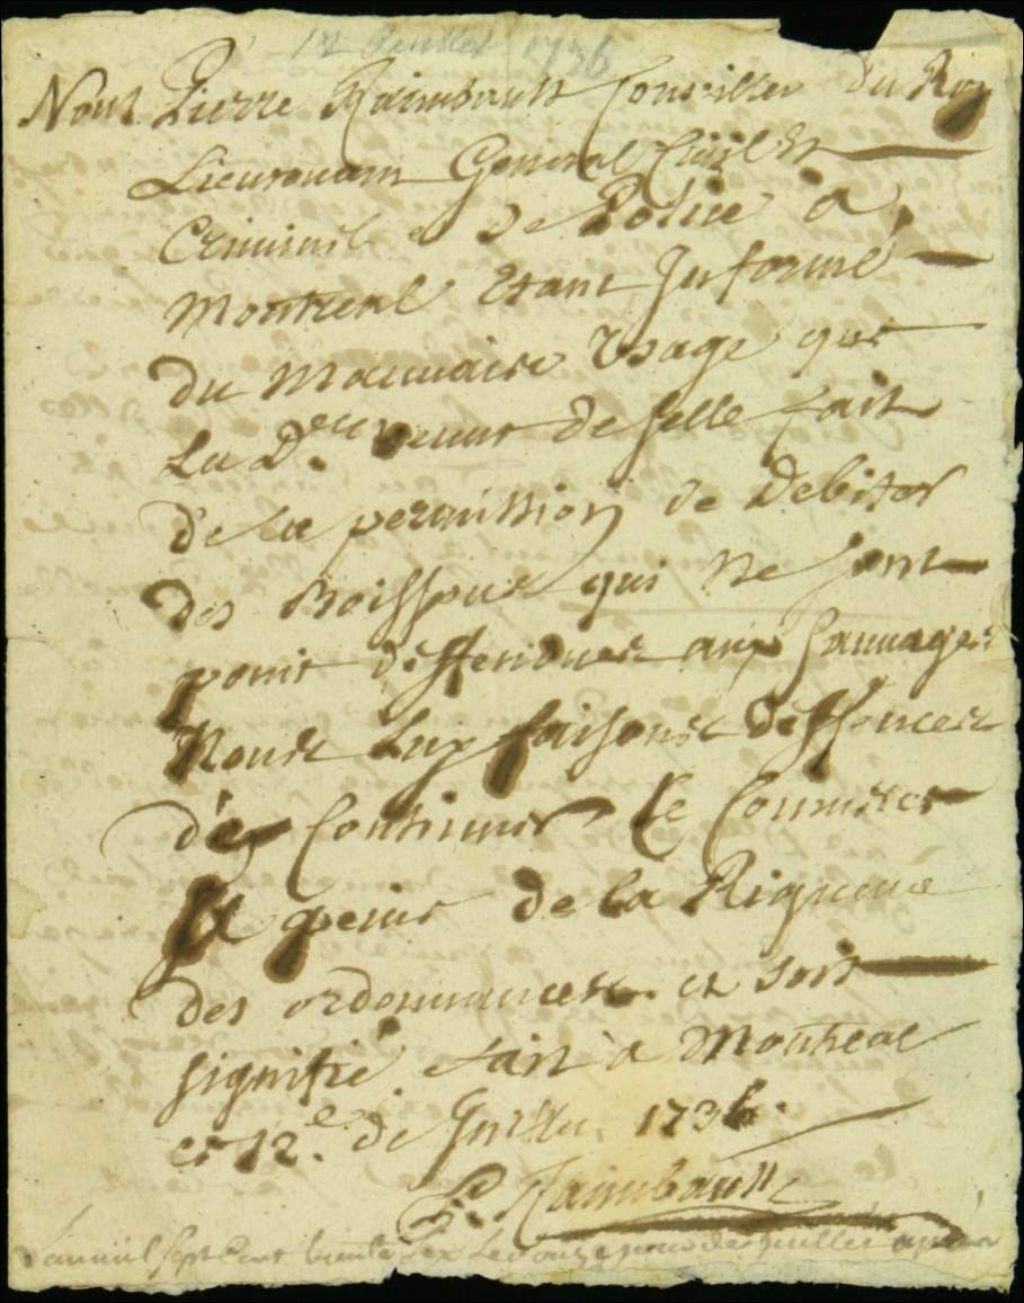 12 Juillet 1736
Nous Pierre Raimbault Conseiller du Roy
Lieutenant General Civil Et
Criminel et de Police a
Montreal Etant Informé
du Mauuaise Vsage que
La De. veuue de selle fait
de la permission de Debiter
des Boissons qui Ne sont
point deffendues aux Sauuages
Nous Luy faisons deffences
de Continuer Le Commerce
A peine de la Rigueur
des ordonnances et soit
signifié. fait a Montreal
ce 12e. de Juillet 1736.
P. Raimbault
Lan mil Sept Cent trente Six Le douze jour de Juillet apres